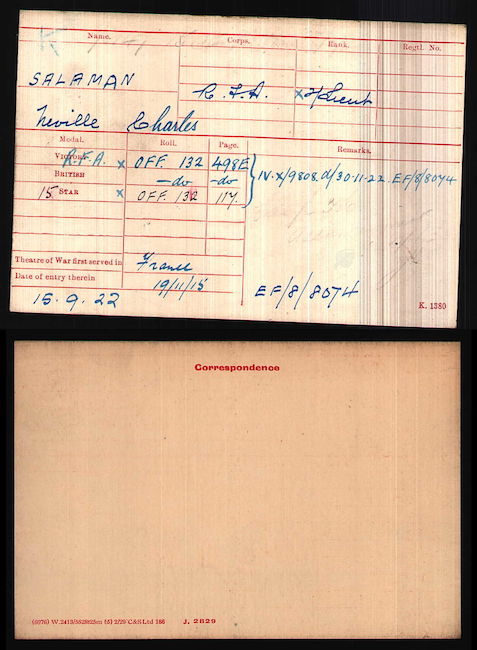 Name. Corps. Rank. Regtl. No.
SALAMAN
R. F. A. x T/Lieut
Neville Charles
Medal. Roll. Page. Remarks.
VICTORY R.F.A. x OFF. 132 498E
BRITISH -do- -do- IV.X/9808.d/30-11-22. EF/8/8074
15 STAR x OFF. 132 117.
Theatre of War first served in France
Date of entry therein 19/11/15
15.9.22 EF/8/8074
K. 1380
Correspondence
(6976) W.2413/5528 25m (5) 2/20 C&S Ltd 166 J. 2629